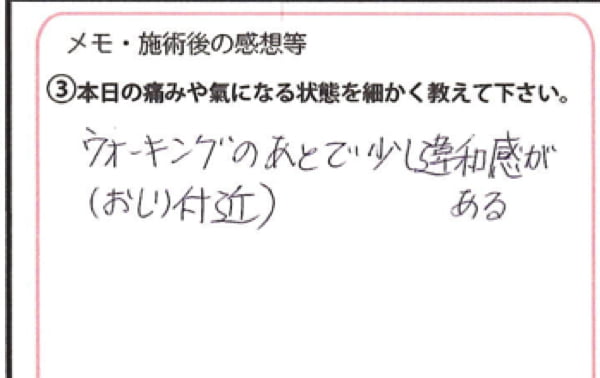 メモ・施術後の感想等
③本日の痛みや氣になる状態を細かく教えて下さい。
ウォーキングのあとで少し違和感が
(おしり付近) ある